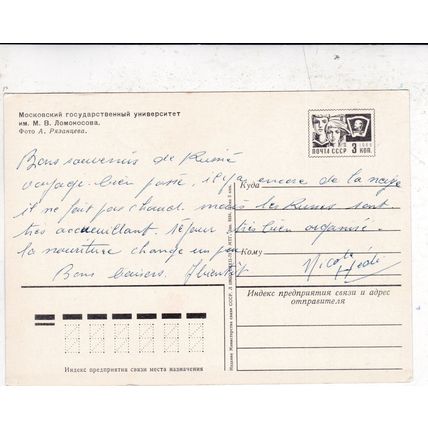 Московский государственный университет
им. М. В. Ломоносова.
Фото А. Рязанцева.
1966
ПОЧТА СССР 3 КОП.
Bons souvenirs de Russie
voyage bien passé, il y a encore de la neige
Куда
il ne fait pas chaud. mais les Russes sont
très accueillant. séjour très bien organisé.
la nourriture change un peu
Кому
Bons baisers. A bientôt
Nicole
Индекс предприятия связи и адрес
отправителя
Индекс предприятия связи места назначения
Издание Министерства связи СССР.